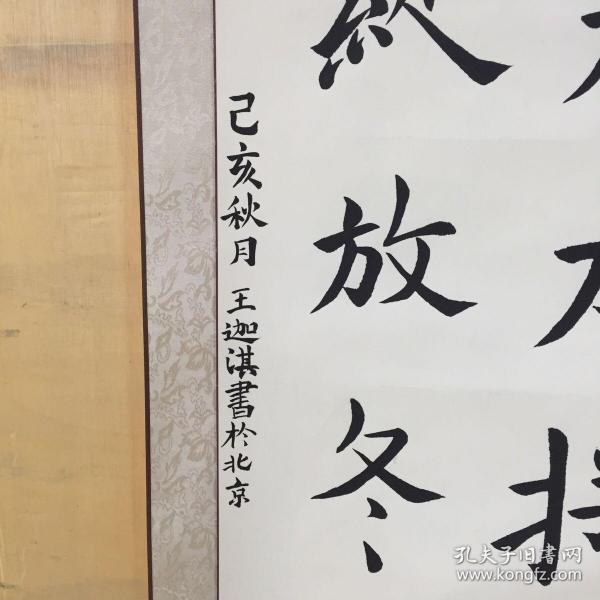 放冬
己亥秋月 王迦淇書於北京
孔夫子旧書网
www.kongfz.com